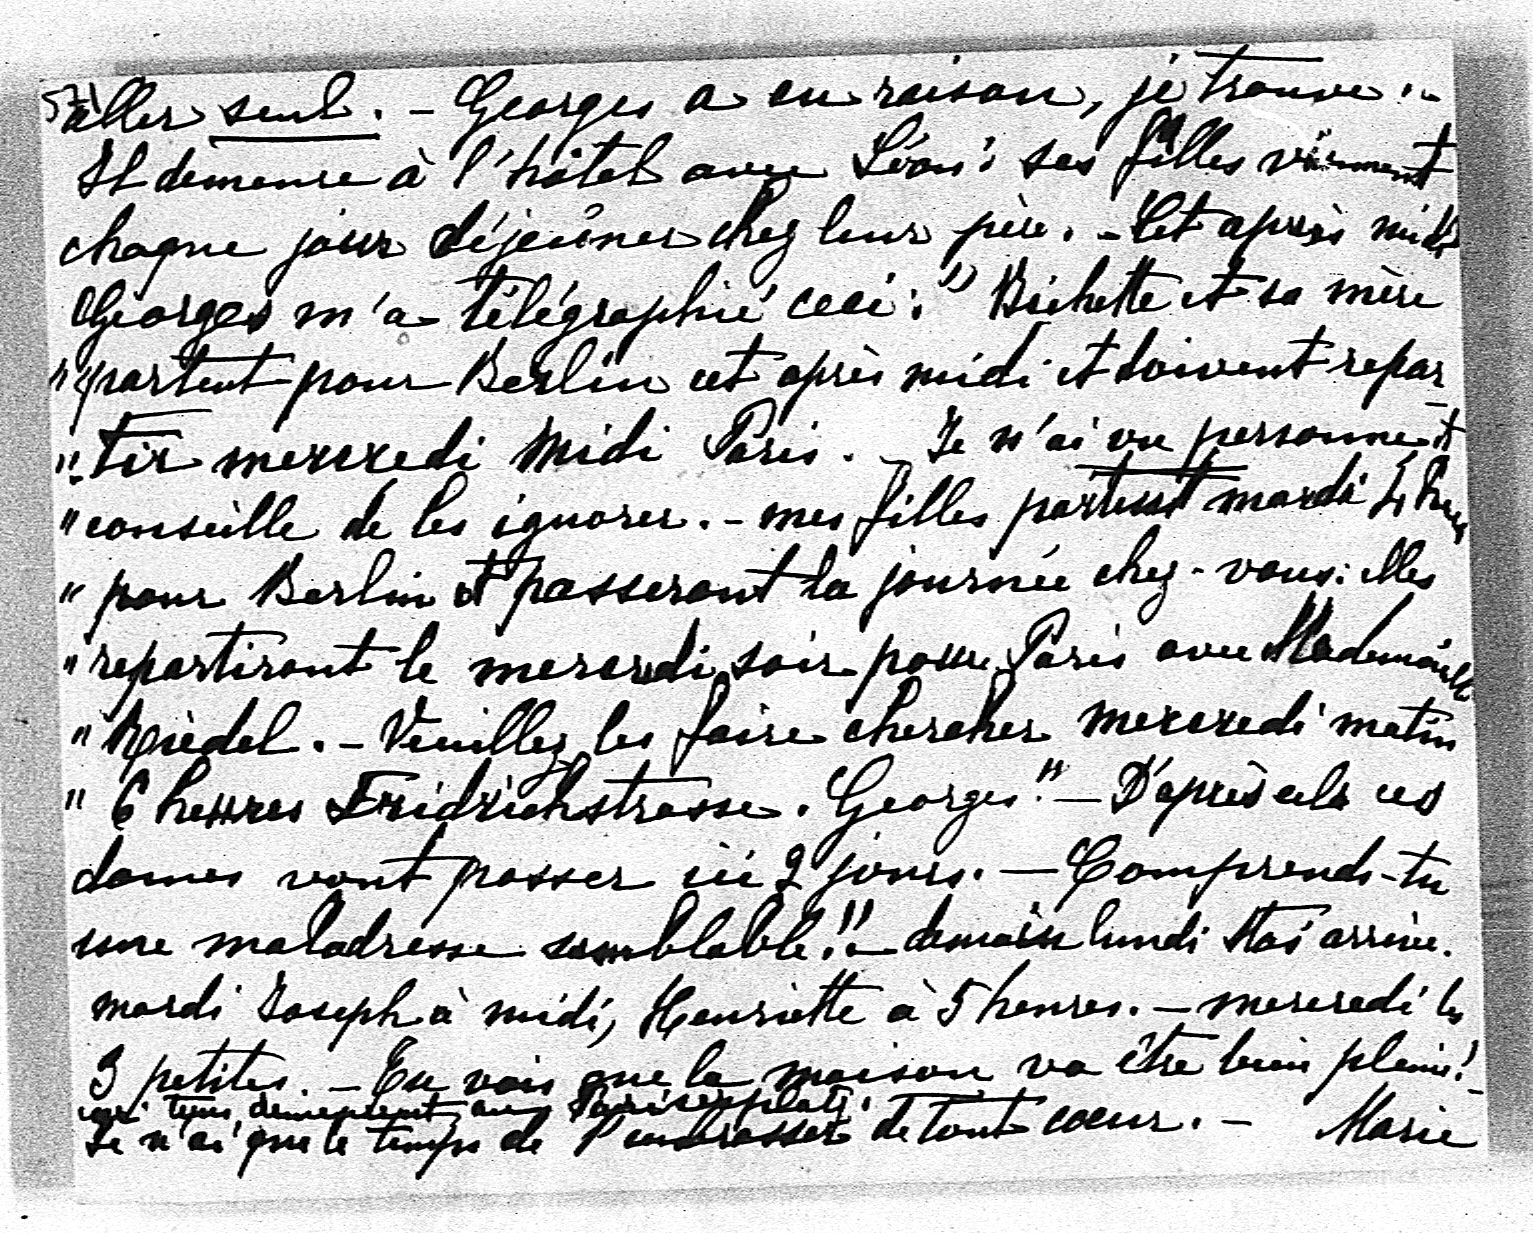 571
aller seul. – Georges a eu raison, je trouve..
Il demeure à l'hôtel avec Léon; ses filles viennent
chaque jour déjeûner chez leur père. – Cet après midi
Georges m'a télégraphié ceci: " Bichette et sa mère
" partent pour Berlin cet après midi et doivent repar-
" tir mercredi midi Paris. – Je n'ai vu personne et
" conseille de les ignorer. – mes filles partent mardi 4 heures
" pour Berlin et passeront la journée chez-vous: elles
" repartiront le mercredi soir pour Paris avec Mademoiselle
" Riedel. – Veuillez les faire chercher mercredi matin
" 6 heures Fridrichstrasse. Georges." – D'après cela ces
dames vont passer ici 2 jours. – Comprends-tu
une maladresse semblable!! – demain lundi Stas arrive.
mardi Joseph à midi, Henriette à 5 heures. – mercredi les
3 petites. – Tu vois que la maison va être bien pleine! –
Je n'ai que le temps de t'embrasser de tout cœur. – Marie